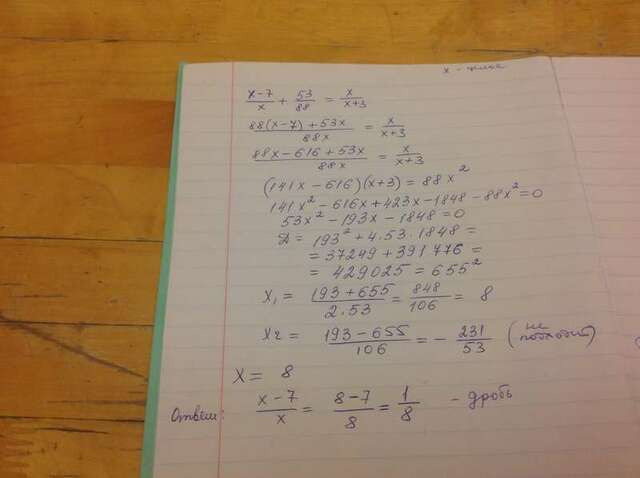 x-7/x + 53/88 = x/x+3
88(x-7)+53x/88x = x/x+3
88x-616+53x/88x = x/x+3
(141x-616)(x+3)=88x²
141x²-616x+423x-1848-88x²=0
53x²-193x-1848=0
D=193²+4.53.1848=
=37249+391776=
= 429025=655²
x₁ = 193+655/2.53 = 848/106 = 8
x₂ = 193-655/106 = - 231/53 (не подходит)
x = 8
Ответ: x-7/x = 8-7/8 = 1/8 - дробь